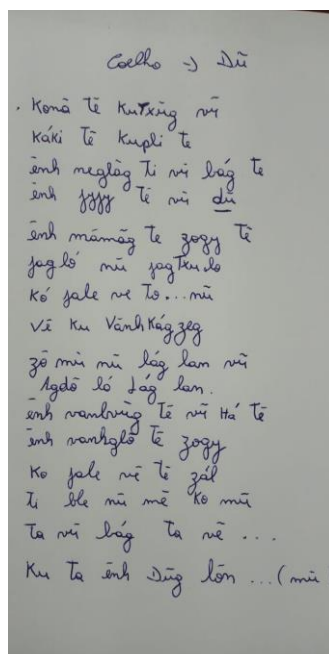 Coelho → Dũ
. Konã tẽ Kutxũg vũ
Káki tẽ Kupli te
ẽnh neglãg ti vũ bág te
ẽnh jyjy tẽ vũ dũ
ẽnh mámãg te zogy tẽ
jagló nũ jagtxulo
kó jale ve to...nũ
Vẽ Ku Vãnhkágzeg
zõ mũ nũ lág lan vũ
Agdõ ló lág lan.
ẽnh vanhvũg tẽ vũ Há tẽ
ẽnh vanhglõ tẽ zogy
Ko jale vẽ tẽ zál
ti ble nũ mẽ ko mũ
Ta vũ bág ta vẽ ...
Ku ta ẽnh Dũg lõn ...(mũ